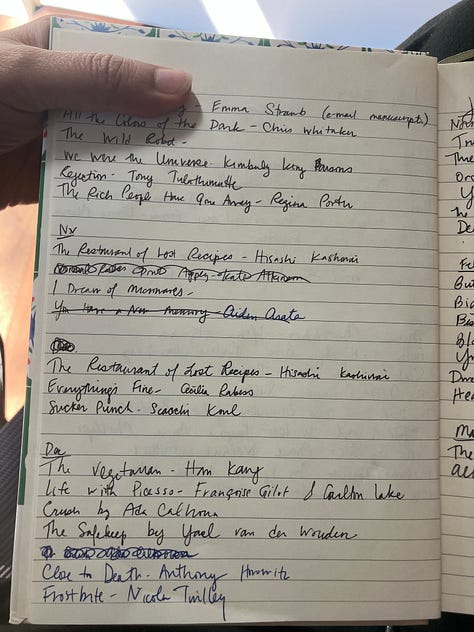 Emma Straub (e-mail manuscripts)
All the Colors of the Dark - Chris Whitaker
The Wild Robot -
We Were the Universe. Kimberly King Parsons
Rejection - Tony Tulathimutte
The Rich People Have Gone Away - Regina Porter
Nv
The Restaurant of Lost Recipes - Hisashi Kashiwai
Apply - Kate Atkinson
I Dream of
You Have a New Memory - Aiden Arata
The Restaurant of Lost Recipes - Hisashi Kashiwai
Everything's Fine - Cecilia Rabess
Sucker Punch. Scaachi Koul
Dec
The Vegetarian - Han Kang
Life with Picasso - Françoise Gilot & Carlton Lake
Crush by Ada Calhoun
The Safekeep by Yael van der Wouden
Close to Death. Anthony Horowitz
Frostbite - Nicola Twilley